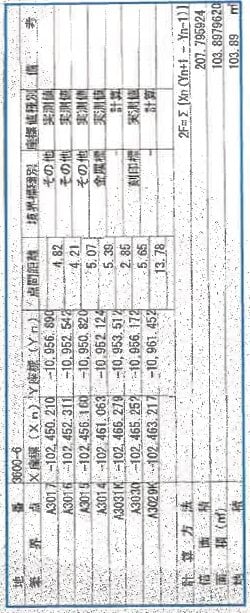 地 番 3600-6
筆界点 X座標(Xn) Y座標(Yn) 点間距離 境界標種別 座標値種別 備 考
A3017 -102,450.210 -10,956.890 その他 実測値
4.82
A3016 -102,452.311 -10,952.542 その他 実測値
4.21
A3015 -102,456.160 -10,950.820 その他 実測値
5.07
A3014 -102,461.063 -10,952.124 金属標 実測値
5.39
A3031K -102,466.279 -10,953.517 - 計算
2.85
A3030 -102,465.252 -10,956.172 刻印標 実測値
5.65
A3029K -102,463.217 -10,961.452 - 計算
13.78
計算方法 2F=Σ[Xn(Yn+1 - Yn-1)]
倍面積 207.795924
面 積(㎡) 103.8979620
地 積 103.89 ㎡